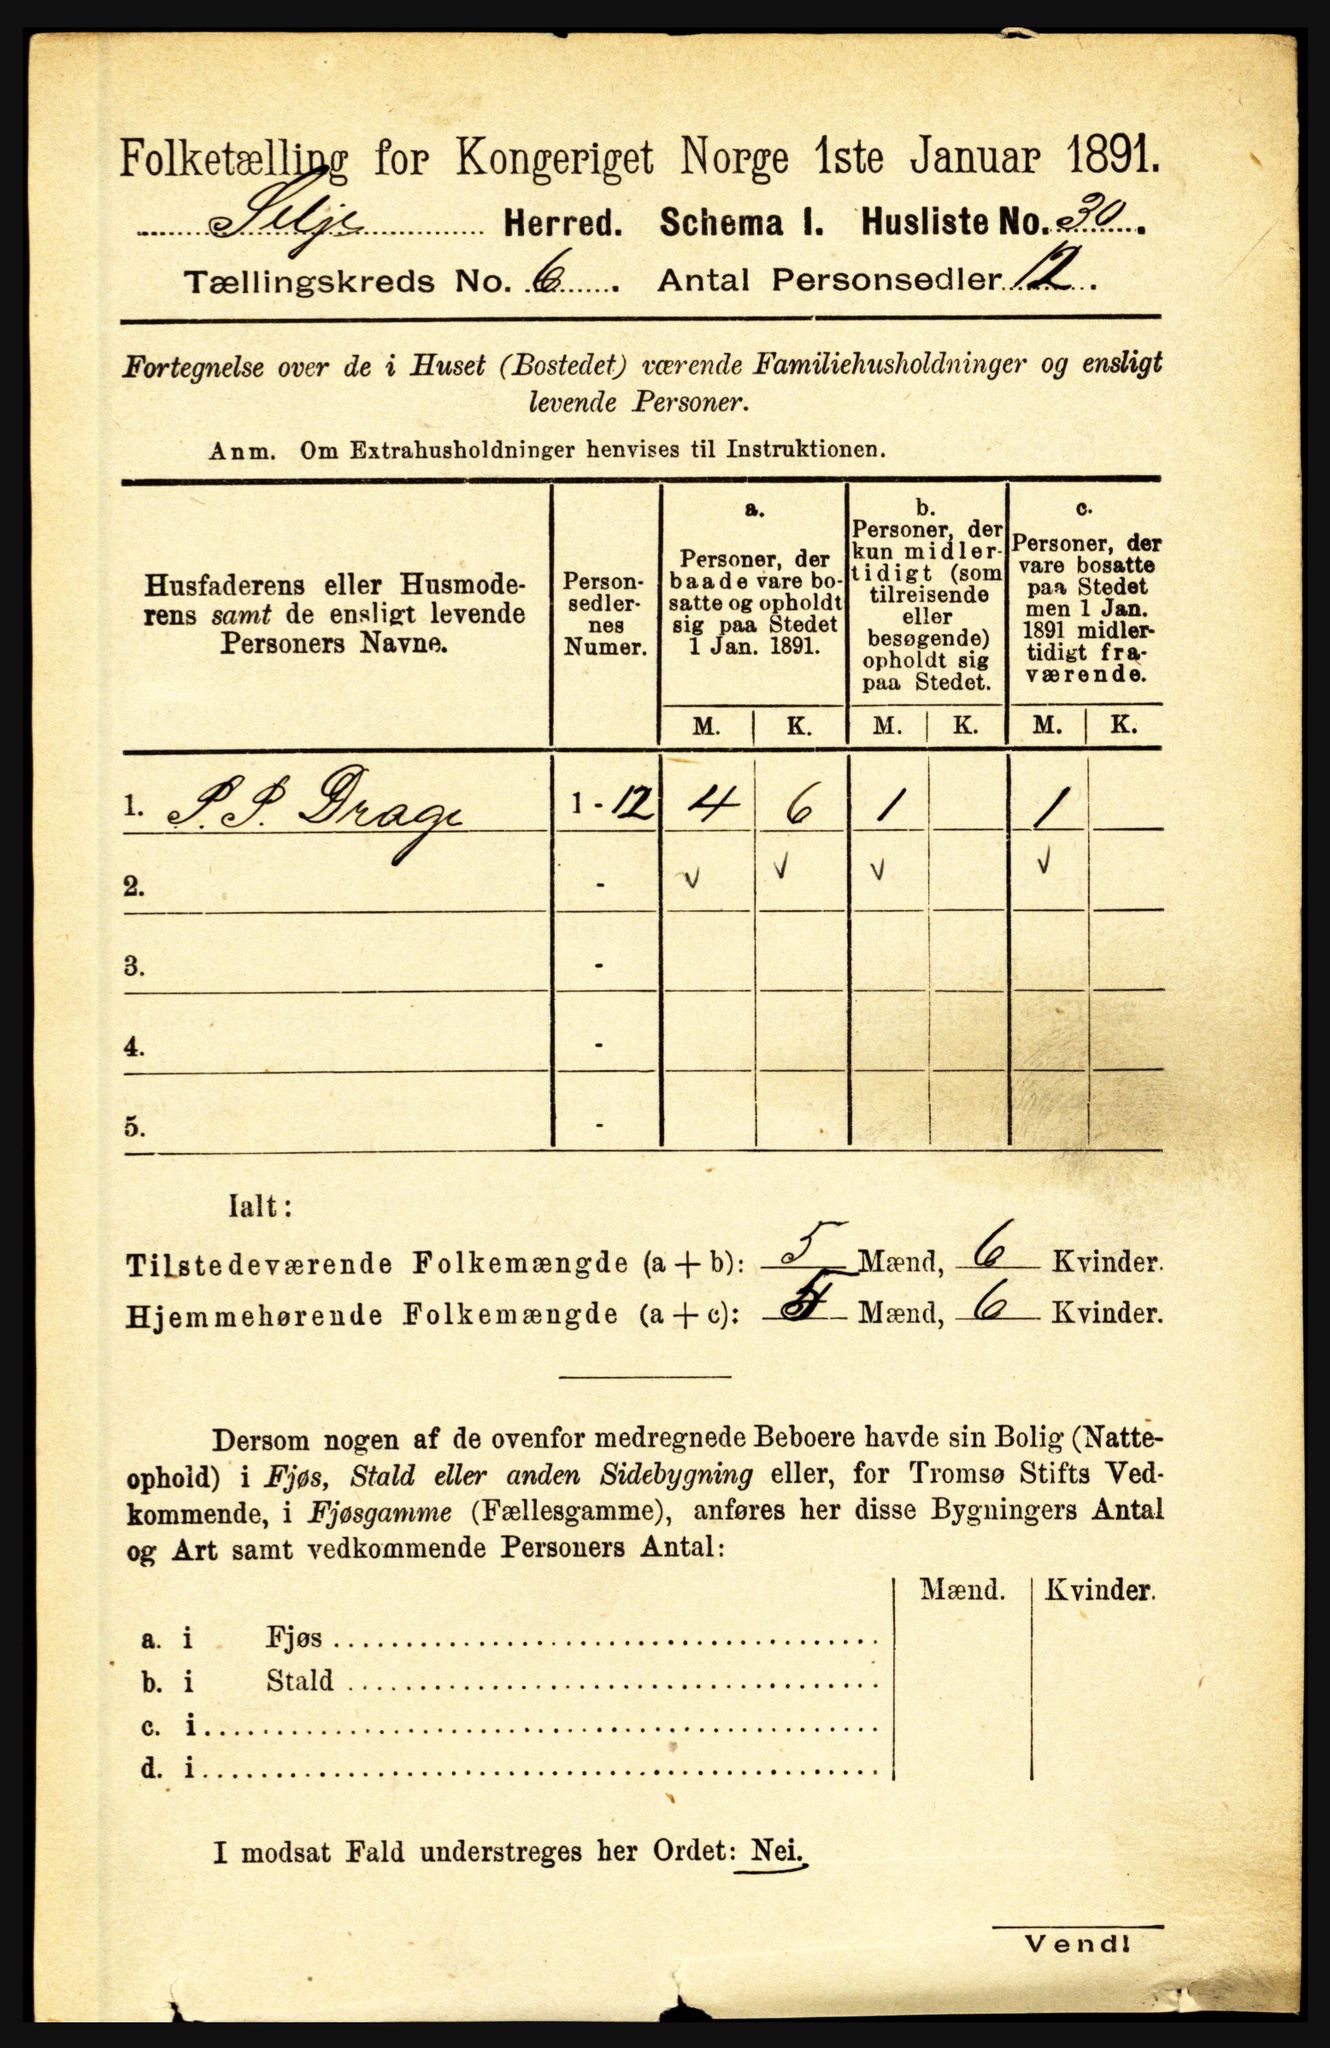 Folketælling for Kongeriget Norge 1ste Januar 1891.
Selje Herred. Schema I. Husliste No. 30.
Tællingskreds No. 6. Antal Personsedler 12.
Fortegnelse over de i Huset (Bostedet) værende Familiehusholdninger og ensligt
levende Personer.
Anm. Om Extrahusholdninger henvises til Instruktionen.
Husfaderens eller Husmode-
rens samt de ensligt levende
Personers Navne.
Person-
sedler-
nes
Numer.
a.
Personer, der
baade vare bo-
satte og opholdt
sig paa Stedet
1 Jan. 1891.
b.
Personer, der
kun midler-
tidigt (som
tilreisende
eller
besøgende)
opholdt sig
paa Stedet.
c.
Personer, der
vare bosatte
paa Stedet
men 1 Jan.
1891 midler-
tidigt fra-
værende.
M. K. M. K. M. K.
1. P. P. Drage 1 - 12 4 6 1 1
2. - v v v v
3. -
4. -
5. -
Ialt:
Tilstedeværende Folkemængde (a + b): 5 Mænd, 6 Kvinder.
Hjemmehørende Folkemængde (a + c): 5 Mænd, 6 Kvinder.
Dersom nogen af de ovenfor medregnede Beboere havde sin Bolig (Natte-
ophold) i Fjøs, Stald eller anden Sidebygning eller, for Tromsø Stifts Ved-
kommende, i Fjøsgamme (Fællesgamme), anføres her disse Bygningers Antal
og Art samt vedkommende Personers Antal:
Mænd. Kvinder.
a. i Fjøs
b. i Stald
c. i
d. i
I modsat Fald understreges her Ordet: Nei.
Vend!